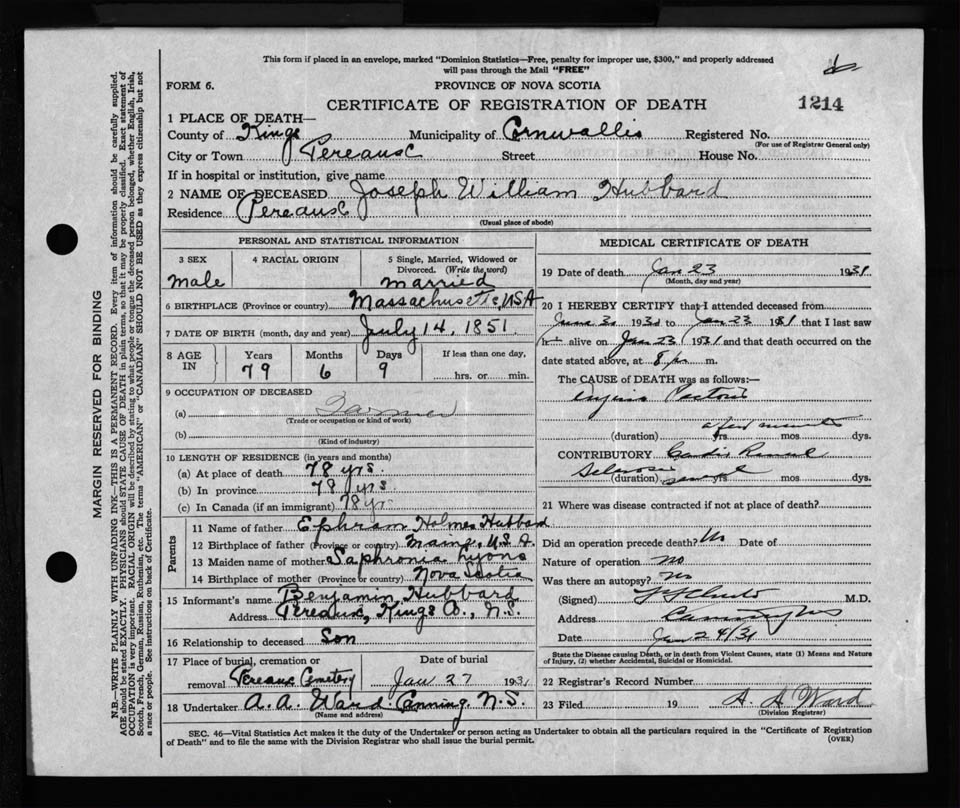 This form if placed in an envelope, marked "Dominion Statistics—Free, penalty for improper use, $300," and properly addressed
will pass through the Mail "FREE"
FORM 6.
PROVINCE OF NOVA SCOTIA
CERTIFICATE OF REGISTRATION OF DEATH
1214
1 PLACE OF DEATH—
County of Kings Municipality of Cornwallis Registered No.
(For use of Registrar General only)
City or Town Pereaux Street House No.
If in hospital or institution, give name
2 NAME OF DECEASED Joseph William Hubbard
Residence Pereaux
(Usual place of abode)
PERSONAL AND STATISTICAL INFORMATION
3 SEX
Male
4 RACIAL ORIGIN
5 Single, Married, Widowed or
Divorced. (Write the word)
Married
6 BIRTHPLACE (Province or country) Massachusetts, USA
7 DATE OF BIRTH (month, day and year) July 14, 1851.
8 AGE IN
Years Months Days If less than one day,
79 6 9 hrs. or min.
9 OCCUPATION OF DECEASED
(a) Farmer
(Trade or occupation or kind of work)
(b)
(Kind of industry)
10 LENGTH OF RESIDENCE (in years and months)
(a) At place of death 78 yrs.
(b) In province 78 yrs
(c) In Canada (if an immigrant) 78 yr
Parents
11 Name of father Ephram Holmes Hubbard
12 Birthplace of father (Province or country) Maine, U.S.A.
13 Maiden name of mother Saphronia Lyons
14 Birthplace of mother (Province or country) Nova Scotia
15 Informant's name Benjamin Hubbard
Address Pereaux, Kings Co., N.S.
16 Relationship to deceased Son
17 Place of burial, cremation or
removal Pereaux Cemetery
Date of burial
Jan 27 1931
18 Undertaker A. A. Ward. Canning. N.S.
(Name and address)
MEDICAL CERTIFICATE OF DEATH
19 Date of death Jan 23 1931
(Month, day and year)
20 I HEREBY CERTIFY that I attended deceased from
June 1930 to Jan 23 1931 that I last saw
h alive on Jan 23 1931 and that death occurred on the
date stated above, at 8 p m.
The CAUSE of DEATH was as follows:—
Angina Pectoris
a few minutes
(duration) yrs mos dys.
CONTRIBUTORY Cardio Renal
Sclerosis
(duration) several yrs mos dys.
21 Where was disease contracted if not at place of death?
Did an operation precede death? No Date of
Nature of operation no
Was there an autopsy? no
(Signed) M.D.
Address
Date Jan 24/31
State the Disease causing Death, or in death from Violent Causes, state (1) Means and Nature
of Injury, (2) whether Accidental, Suicidal or Homicidal.
22 Registrar's Record Number
23 Filed 19 A. A. Ward
(Division Registrar)
SEC. 46—Vital Statistics Act makes it the duty of the Undertaker or person acting as Undertaker to obtain all the particulars required in the "Certificate of Registration
of Death" and to file the same with the Division Registrar who shall issue the burial permit.
(OVER)
MARGIN RESERVED FOR BINDING
N.B.—WRITE PLAINLY WITH UNFADING INK—THIS IS A PERMANENT RECORD. Every item of information should be carefully supplied.
AGE should be stated EXACTLY. PHYSICIANS should STATE CAUSE OF DEATH in plain terms, so that it may be properly classified. Exact statement of
OCCUPATION is very important. RACIAL ORIGIN will be described by stating to what people or tongue the deceased person belonged, whether English, Irish,
Scotch, French, German, Russian, Ruthenian, etc. The terms "AMERICAN" or "CANADIAN" SHOULD NOT BE USED as they express citizenship but not
a race or people. See instructions on back of Certificate.